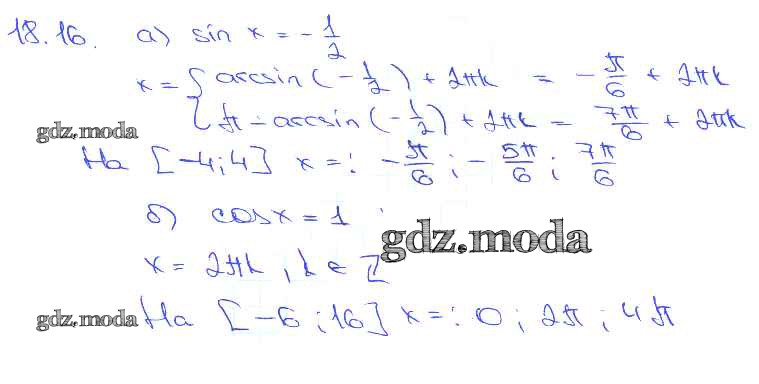 18.16. а) sin x = - 1/2
x = { arcsin (- 1/2) + 2πk = - π/6 + 2πk
{ π - arcsin (- 1/2) + 2πk = 7π/6 + 2πk
gdz.moda
На [-4; 4] x = : - π/6 ; - 5π/6 ; 7π/6
б) cos x = 1
gdz.moda
x = 2πk, k ∈ Z
gdz.moda На [-6; 16] x = : 0 ; 2π ; 4π